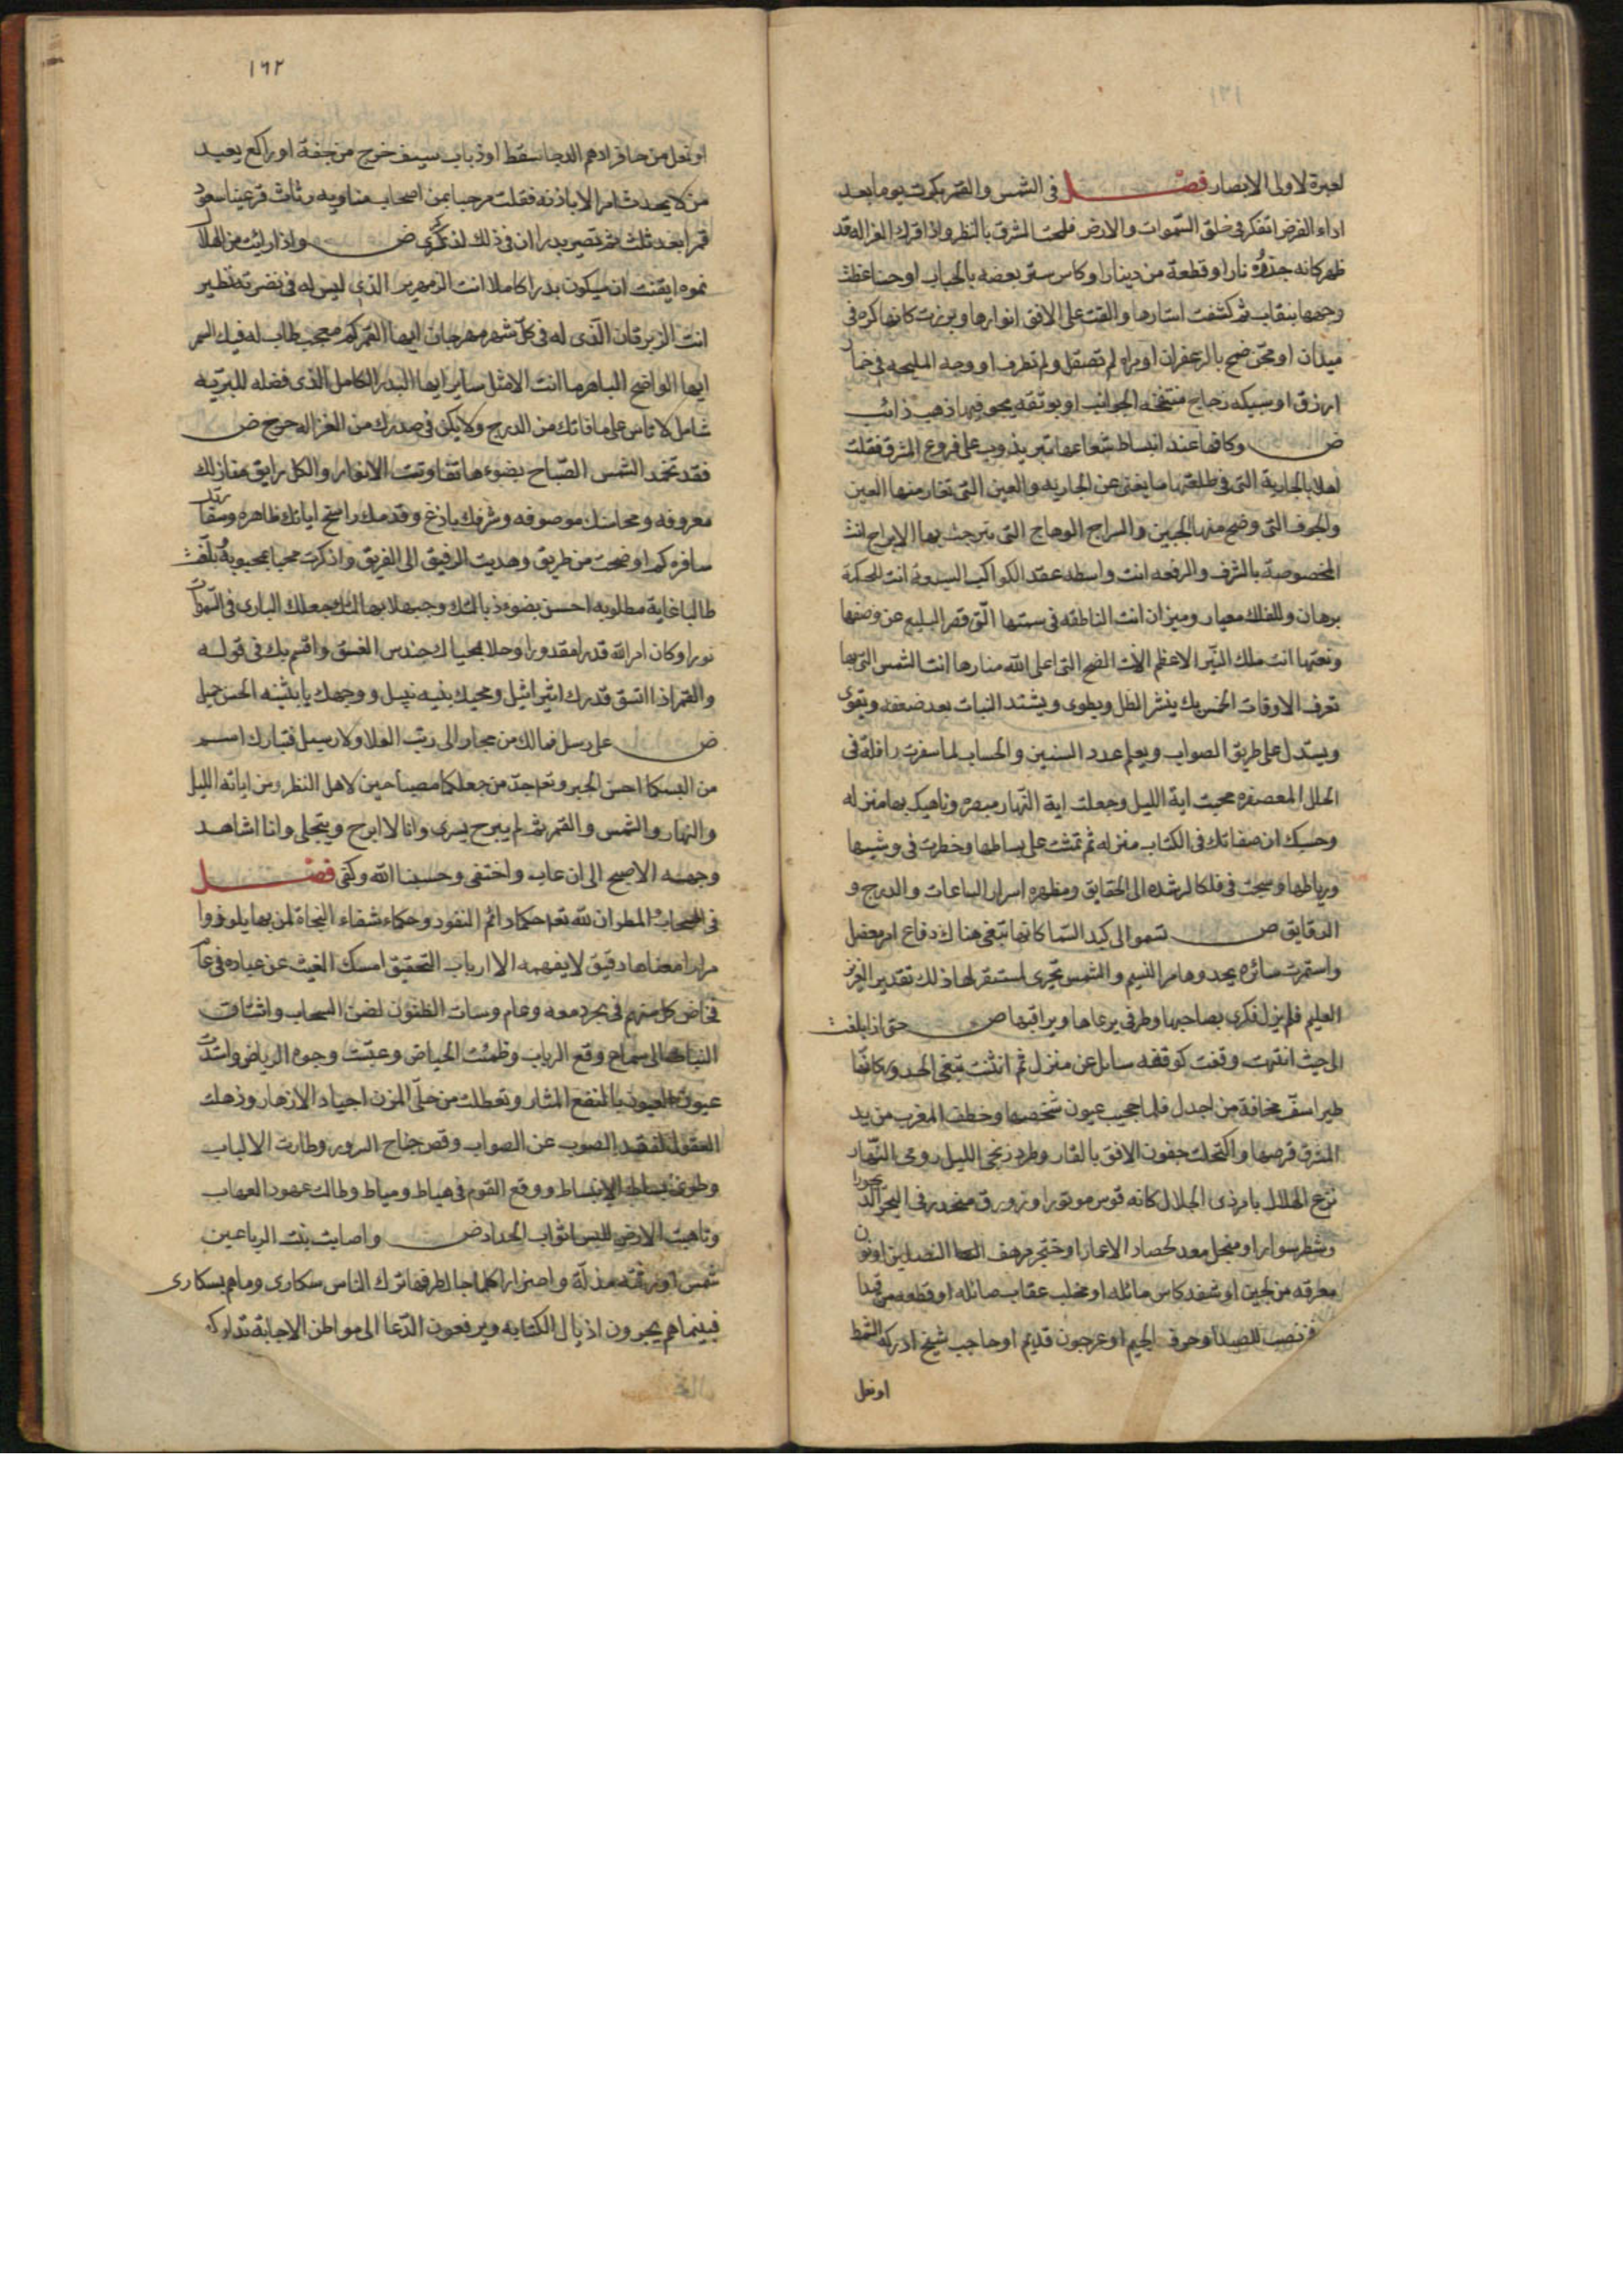 ١٦١
لعبرة لاولى الابصار فصل فى الشمس والقمر بكرت يوما بعد
اداء الفرض اتفكر فى خلق السموات والارض فلمحت المشرق بالنظر واذا قرن الغزاله قد
ظهر كانه جذوة نار او قطعة من دينار او كاس ستر بعضه بالحباب او حسنا غطت
وجهها بنقاب ثم كشفت استارها والقت على الافق انوارها وبرزت كانها كره فى
ميدان او مجن ضمخ بالزعفران او مراه لم تصقل ولم تطرف او وجه المليحه فى خمار
ازرق او سبيكه زجاج منتفخه الجوانب او بوتقه يحجو فيها ذهب ذائب
ض وكانها عند انبساط شعاعها تبر يذوب على فروع المشرق فقلت
اهلا بالجارية التى فى طلعتها ما يغنى عن الجاريه والعين التى تغار منها العين
والجوف التى وضح منها الجبين والسراج الوهاج التى تبرجت بها الابراج انت
المخصوصة بالشرف والرفعه انت واسطه عقد الكواكب السبعة انت للحكمة
برهان وللفلك معيار وميزان انت الناطقه فى سمتها التى قصر البليغ عن وصفها
ونعتها انت ملك النير الاعظم انت الضح التى اعلى الله منارها انت الشمس التى بها
تعرف الاوقات الخمس بك ينشر الظل ويطوى ويشتد النبات بعد ضعفه ويقوى
ويستدل على طريق الصواب ويعلم عدد السنين والحساب لما سفرت رافلة فى
الحلل المعصفره محيت اية الليل وجعلت اية النهار مبصره وناهيك بها منزله
وحسبك ان صفاتك فى الكتاب منزله ثم تمشت على بساطها وخطرت فى وشيها
ورياطها وسبحت فى فلكها مرشده الى الحقايق ومظهره اسرار الساعات والدرج و
الدقايق ض تسموا الى كبد السما كانها تبغى هناك دفاع امر معضل
واستمرت سائره يحدوها مر النسيم والشمس تجرى لمستقر لها ذلك تقدير العزيز
العليم فلم يزل فكرى يصاحبها وطرفى يرعاها ويراقبها ض حتى اذا بلغت
الى حيث انتهت وقفت كوقفه سائل عن منزل ثم انثنت تبغى الحدور كانها
طير اسف مخافة من اجدل فلما حجب عيون شخصها وخطف المغرب من يد
المشرق قرصها واكتحلت جفون الافق بالقار وطرد زنجى الليل رومى النهار
بزغ الهلال بامر ذى الجلال كانه قوس موتور او زورق منحدر فى البحر
وشطر سوار او منجل معد لحصاد الاعمار او خنجر مرهف النصلين او نون
معرقه من لجين او شفه كاس مائله او مخلب عقاب صائله او قطعه من قيد
فخ نصب للصيد او حرف الجيم او عرجون قديم او حاجب شيخ ادركه الشمط
او نعل
١٦٢
او نعل من حافر ادهم الدجا سقط او ذباب سيف خرج من جفنه او راكع يعبد
من لا يحدث امر الا باذنه فقلت مرحبا بمن اصحاب مناويه رثاث قرعينا ستعود
قمرا بعد ثلث ثم تصير بدرا ان فى ذلك لذكرى ض واذا رايت من الهلال
نموه ايقنت ان سيكون بدرا كاملا انت الزمهرير الذى ليس له فى نضرته نظير
انت الزبرقان الذى له فى كل شهر مهرجان ايها القمر كم معجب طاب له فيك السمر
ايها الواضح الباهر ما انت الا مثل ساير ايها البدر الكامل الذى فضله للبريه
شامل لا تاس على ما فاتك من الدرج ولا يكن فى صدرك من الغزاله حرج ض
فقد تخمد الشمس الصباح بضوءها تفاوتت الانوار والكل رايق مغازلك
معروفه ومحاسنك موصوفه وشرفك باذخ وقدمك راسخ اياتك ظاهره
سافره كم اوضحت من طريق وهديت الرفيق الى الفريق واذكرت محبا بمحبوبه وبلغت
طالبا غاية مطلوبه احسن بضوء ذبالتك وجبهلا بهالتك وجعلك البارى فى السموات
نورا وكان امر الله قدرا مقدورا وجلا بمحياك حندس الغسق واقسم بك فى قوله
والقمر اذا اتسق قدرك اثير اثيل ومحبك بنيه نبيل ووجهك يا بثينه الحسن جميل
ض على رسل فمالك من مجار الى رتب العلا ولا رسيل فتبارك اسم
من البسكما احسن الحبر وتعا جد من جعلكما مصباحين لاهل النظر ومن اياته الليل
والنهار والشمس والقمر ثم لم يبرح يسرى وانا لا ابرح ويتجلى وانا اشاهد
وجهه الاصبح الى ان غاب واختفى وحسبنا الله وكفى فصل
فى السحاب والمطر ان لله تعا حكما دائم النفوذ وحكماء شفاء النجاة لمن بها يلوذوا
مرارا معناها دقيق لا يفهمه الا ارباب التحقيق امسك الغيث عن عباده فى عام
فخاض كل منهم فى بحر دمعه وعام وسات الظنون لضن السحاب واشتاقت
النبات الى سماع وقع الرباب وظمئت الحياض وعبثت وجوه الرياض واشتدت
عيون بالنقع المثار وتعطلت من حلى المزن اجياد الازهار وذهلت
العقول لفقد الصوب عن الصواب وقص جناح السرور وطارت الالباب
وطوى بساط الانبساط ووقع القوم فى هياط ومياط وطالت عهود العهاب
وتاهبت الارض للبس اثواب الحداد ض واصابت بنت الرياعين
شمس اورثته مذلة واصفرارا كلما جال طرفها ترك الناس سكارى وما هم بسكارى
فبينما هم يجرون اذيال الكتابه ويرفعون الدعا الى مواطن الاجابة تداركـ